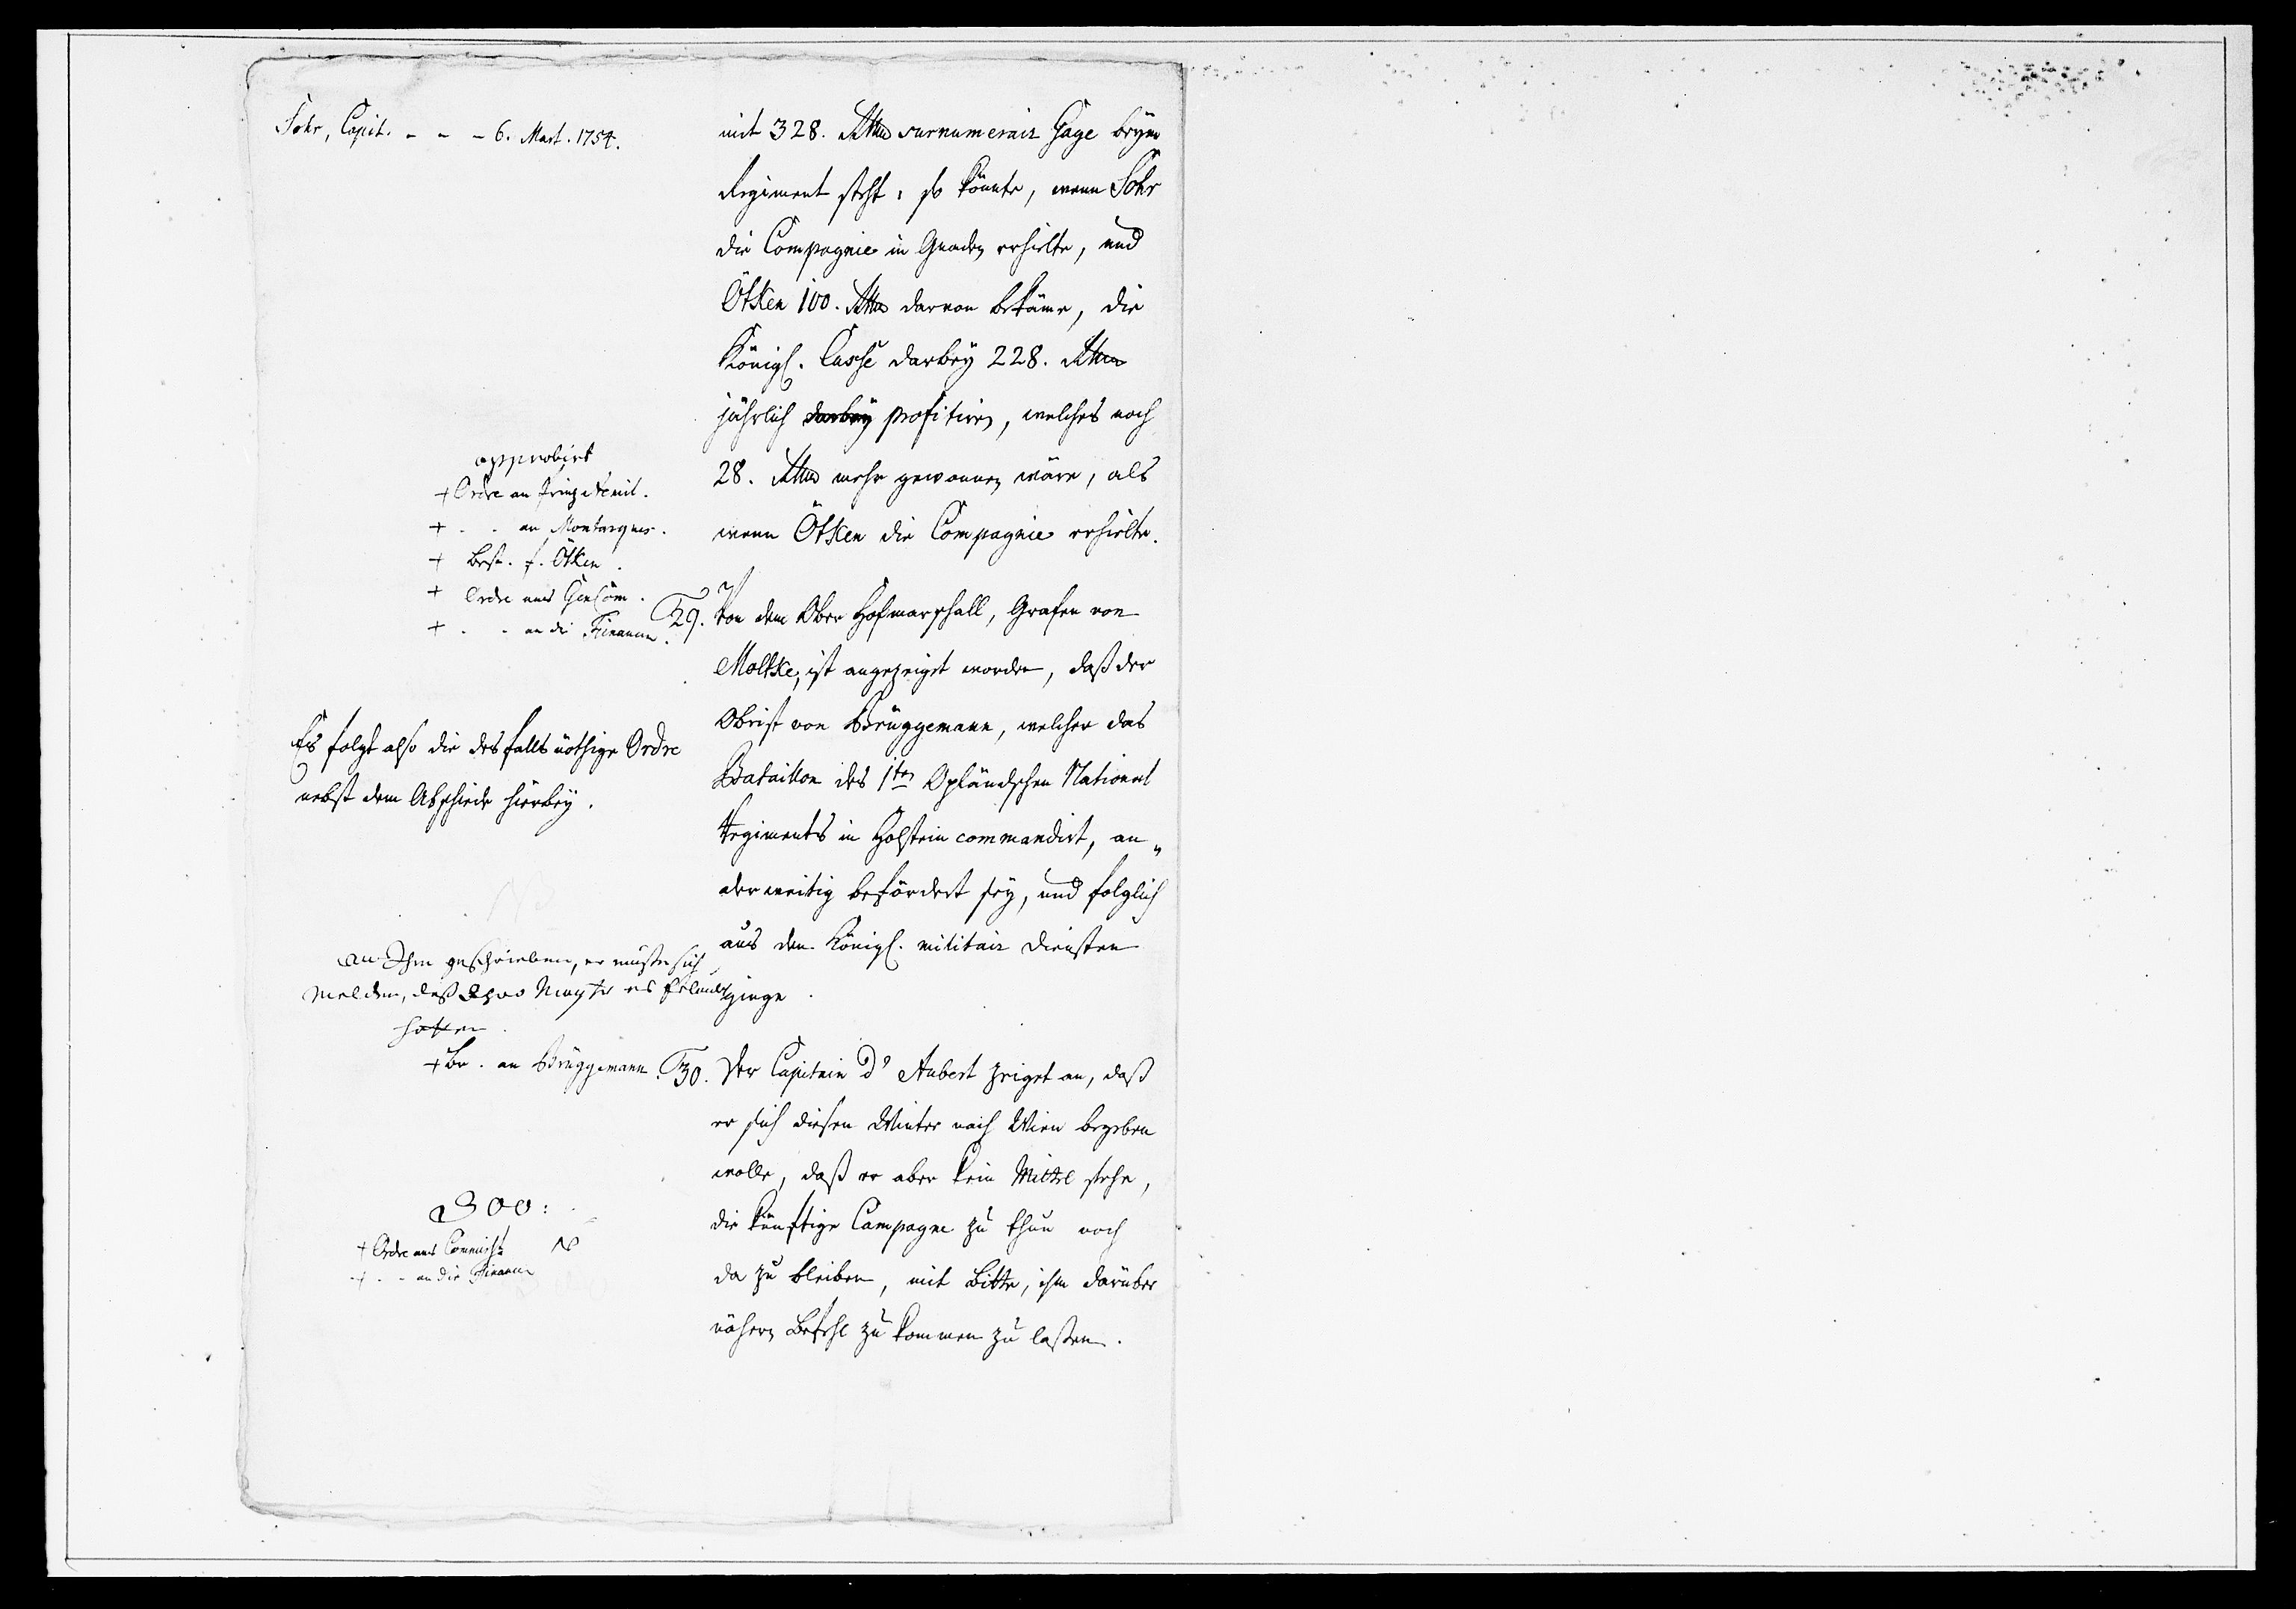 Sohr, Capit. - - - 6. Mart. 1754.
mit 328. Rthlr surnumerair Gage beym
Regiment steht: so könnte, wenn Sohr
die Compagnie in Gnaden erhielte, und
Ötken 100. Rthlr darvon bekäme, die
Königl. Casse darbey 228. Rthlr
jährlich darbey profitiren, welches noch
28. Rthlr mehr gewonnen wäre, als
wenn Ötken die Compagnie erhielte.
approbirt
+ Ordre an Prinz Aemil.
+ - - an Montargues.
+ Best. f. Ötken.
+ Ordre ans GenCom.
+ - - an die Financen.
29. Von dem Ober Hofmarschall, Grafen von
Moltke, ist angezeiget worden, daß der
Obrist von Brüggemann, welcher das
Bataillon des 1ten Opländschen National
Regiments in Holstein commandirt, an„
derweitig befördert sey, und folglich
aus den Königl. militair Diensten
ginge.
Es folgt also die desfalls nöthige Ordre
nebst dem Abschiede hierbey.
NB
an Ihm geschrieben, er müste sich
melden, daß Ihro Mayts es erlaubt
hatten.
+ Br. an Brüggemann.
30. Der Capitain d'Aubert zeiget an, daß
er sich diesen Winter nach Wien begeben
wolle, daß er aber kein Mittel sehe,
die künftige Campagne zu thun noch
da zu bleiben, mit Bitte, ihm darüber
nähern Befehl zu kommen zu laßen.
300:
+ Ordre ans Commiss.
+ - - an die Financen